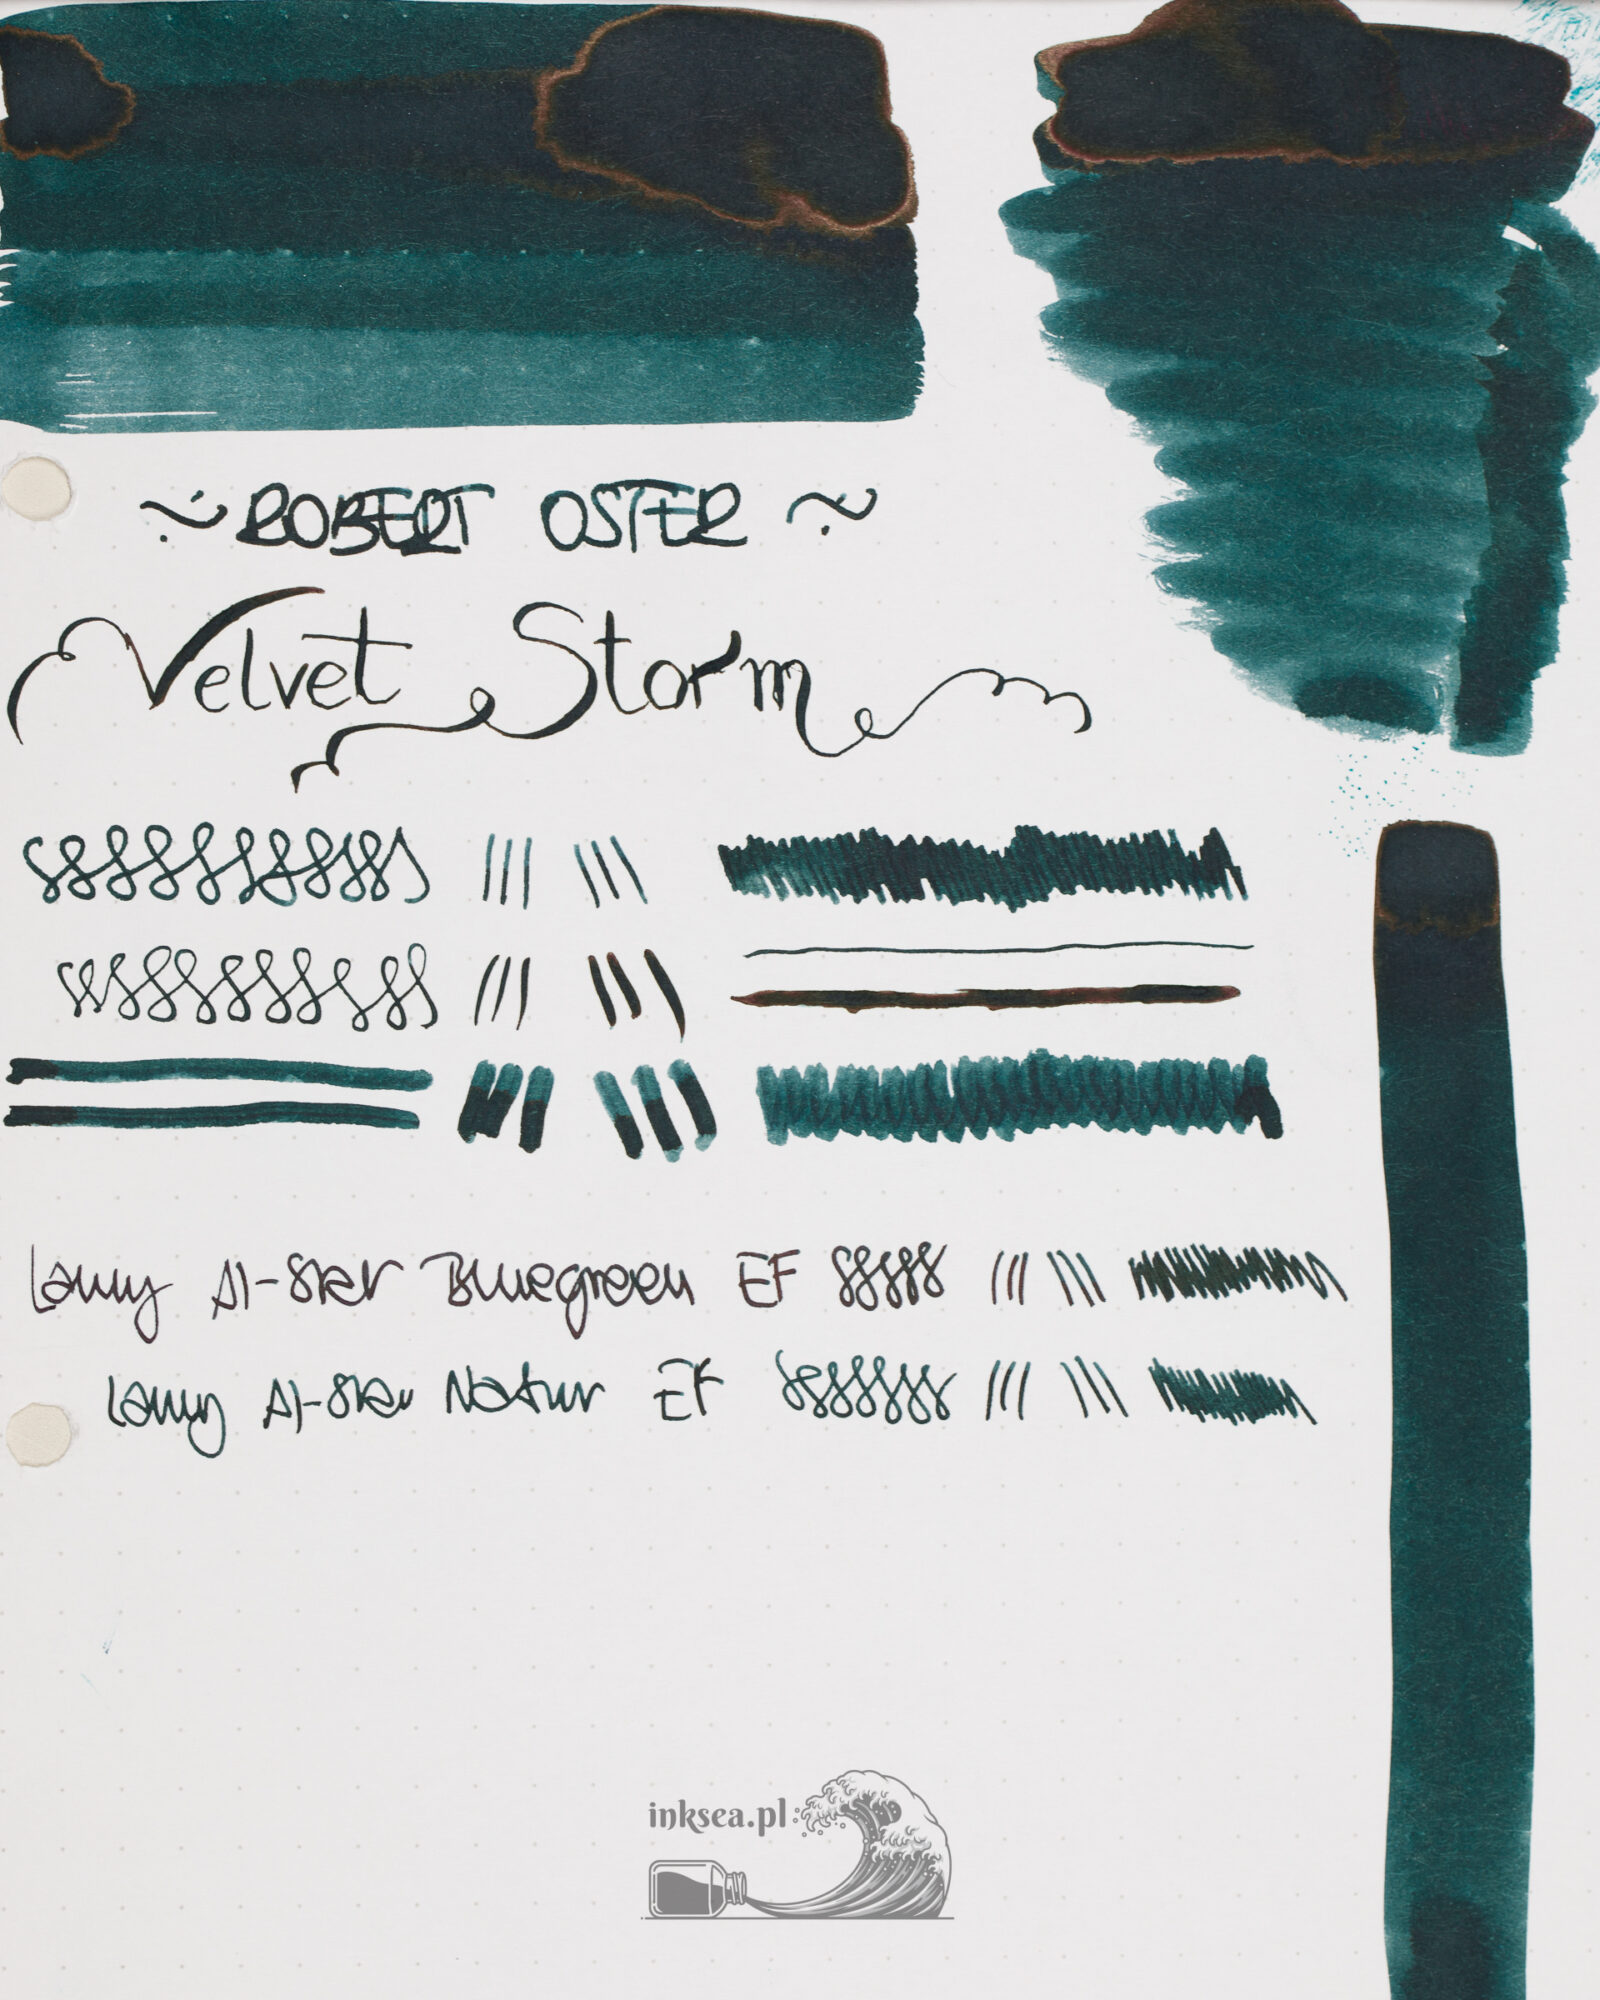 ~ ROBERT OSTER ~
Velvet Storm
Lamy Al-Star Bluegreen EF
Lamy Al-Star Natur EF
inksea.pl